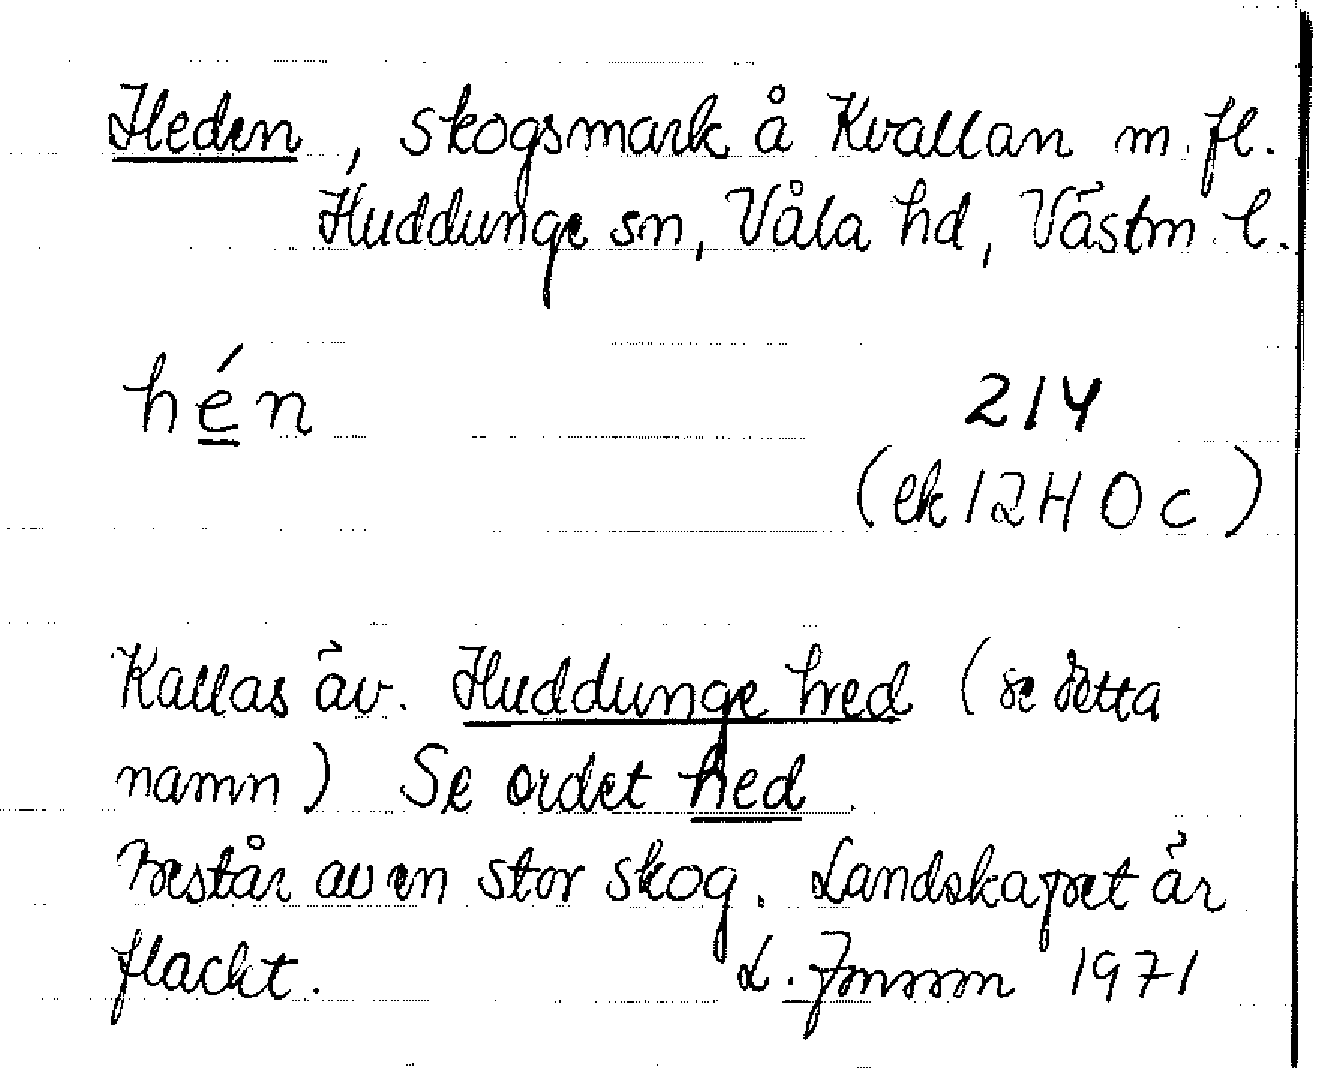 Heden, skogsmark å Kvallan m.fl.
Huddunge sn, Våla hd, Västm l.
hén
214
(ek 12H 0c)
Kallas äv. Huddunge hed (se detta
namn) Se ordet hed.
Består av en stor skog. Landskapet är
flackt. L. 1971